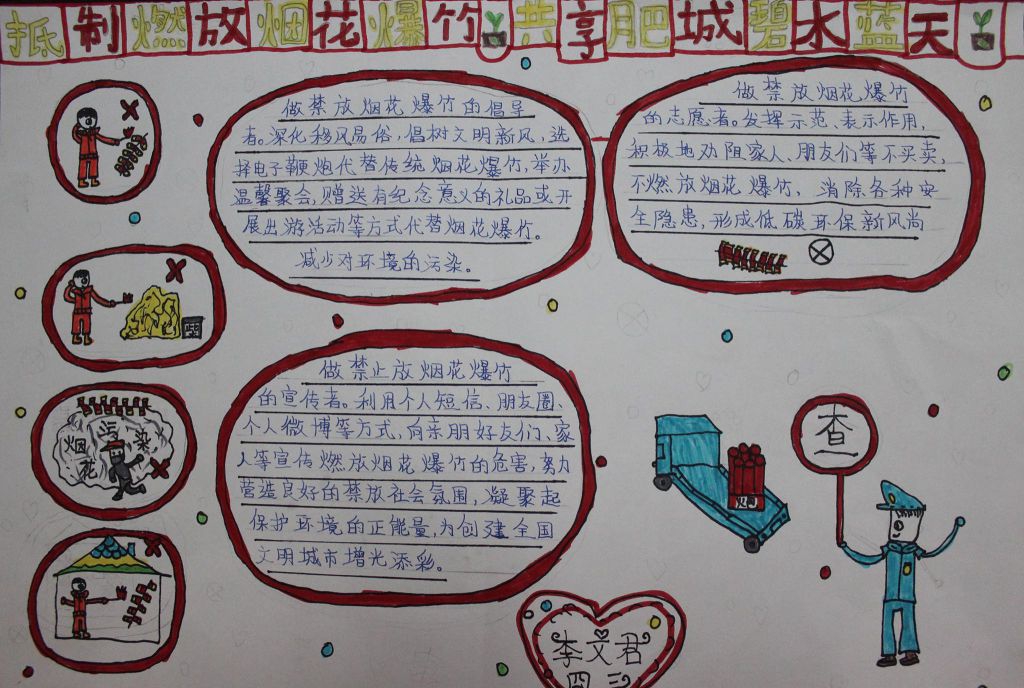 抵制燃放烟花爆竹共享肥城碧水蓝天
做禁放烟花爆竹的倡导
者。深化移风易俗，倡树文明新风，选
择电子鞭炮代替传统烟花爆竹，举办
温馨聚会，赠送有纪念意义的礼品或开
展出游活动等方式代替烟花爆竹。
减少对环境的污染。
做禁放烟花爆竹
的志愿者。发挥示范、表示作用，
积极地劝阻家人、朋友们等不买卖，
不燃放烟花爆竹，消除各种安
全隐患，形成低碳环保新风尚
烟花
污染
做禁止放烟花爆竹
的宣传者。利用个人短信、朋友圈、
个人微博等方式，向亲朋好友们、家
人等宣传燃放烟花爆竹的危害，努力
营造良好的禁放社会氛围，凝聚起
保护环境的正能量，为创建全国
文明城市增光添彩。
查
李文君
四 三